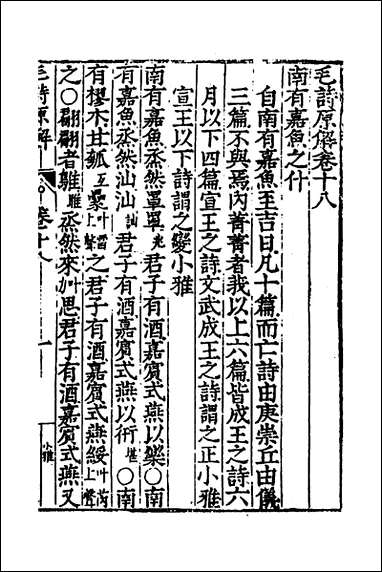 毛詩原解卷十八
南有嘉魚之什
自南有嘉魚至吉日凡十篇而亡詩由庚崇丘由儀
三篇不與焉內菁菁者我以上六篇皆成王之詩六
月以下四篇宣王之詩文武成王之詩謂之正小雅
宣王以下詩謂之變小雅
南有嘉魚烝然罩罩兆君子有酒嘉賓式燕以樂〇南
有嘉魚烝然汕汕訕君子有酒嘉賓式燕以衎堪〇南
有樛木甘瓠互纍叶雷上聲之君子有酒嘉賓式燕綏叶芮上聲
之〇翩翩者鵻隹烝然來思君子有酒嘉賓式燕又
毛詩原解 卷十八 一 小雅